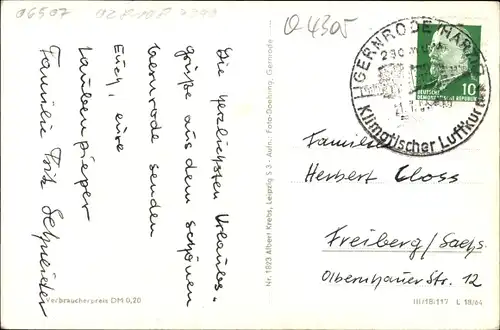 06507
Q 4305
Die herzlichsten Urlaubs-
grüße aus dem schönen
Gernrode senden
Euch, eure
Laubenpieper
Familie Fritz Schneider
Verbraucherpreis DM 0,20
Nr. 1823 Albert Krebs, Leipzig S 3 - Aufn. Foto-Doebling, Gernrode
GERNRODE (HARZ)
Klimatischer Luftkurort
10
DEUTSCHE
DEMOKRATISCHE REPUBLIK
Familie
Herbert Closs
Freiberg/Sachs.
Olbernhauer Str. 12
III/18/117 L 18/64